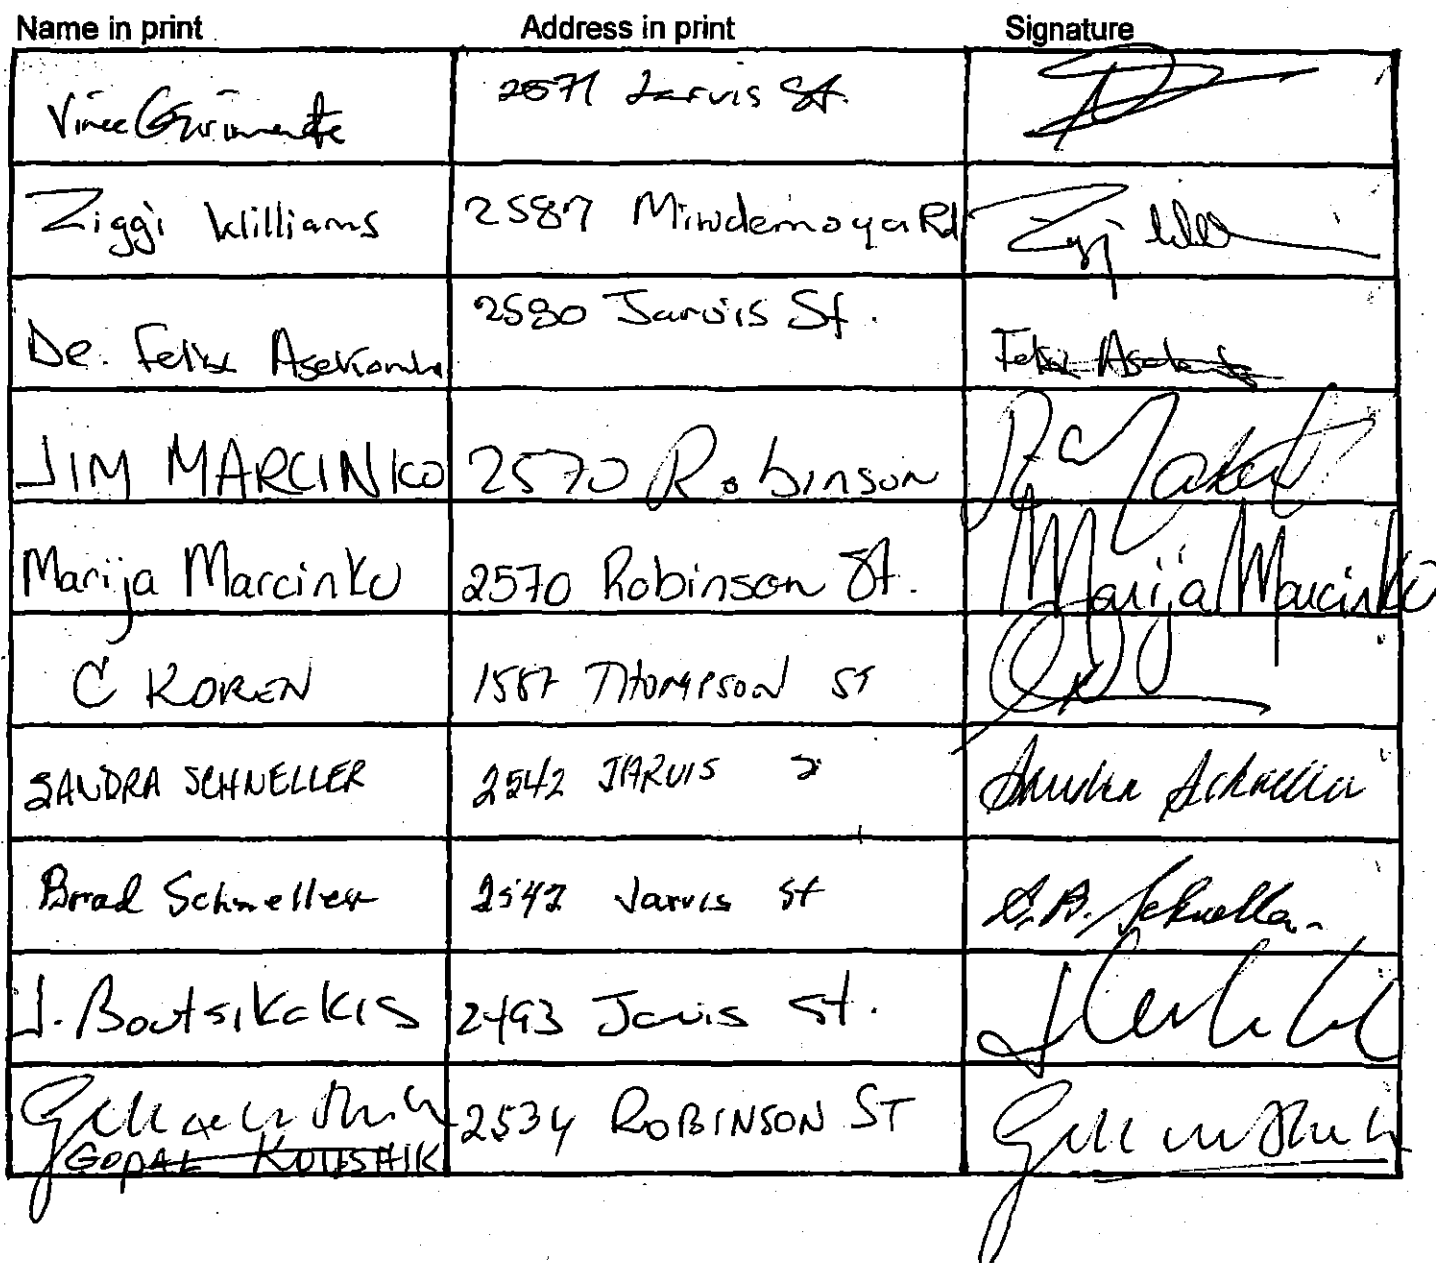 Name in print Address in print Signature
Vince 2571 Jarvis St.
Ziggi Williams 2587 Mindemoya Rd
De. Felix 2580 Jarvis St. Felix
JIM MARCINKO 2570 Robinson
Marija Marcinko 2570 Robinson St. Marija Marcinko
C KOREN 1587 THOMPSON ST
SANDRA SCHNELLER 2542 JARVIS Sandra Schneller
Brad Schneller 2542 Jarvis St S.B. Schneller
J. Boutsikakis 2493 Jarvis St.
2534 ROBINSON ST
GOPAL KOUSHIK